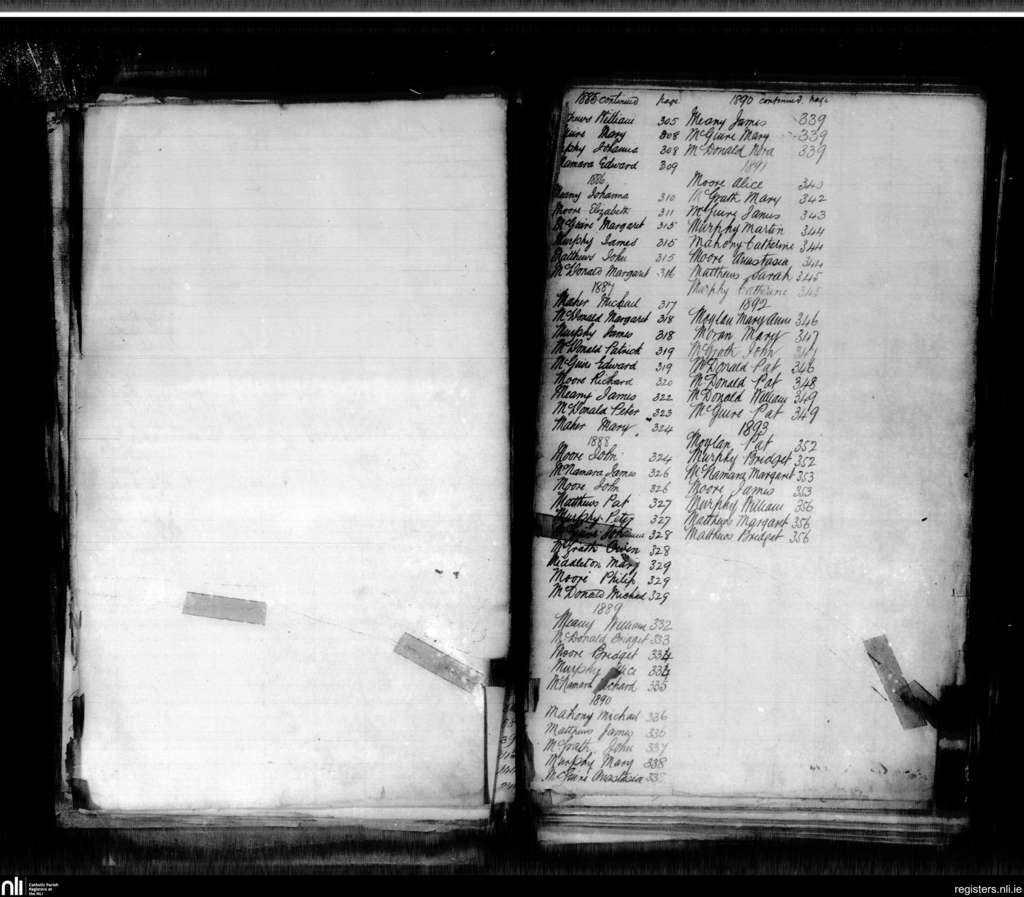 1885 continued page
William 305
Mary 308
Johanna 308
Edward 309
1886
Meany Johanna 310
Moore Elizabeth 311
McGuire Margaret 315
Murphy James 315
Matthews John 315
McDonald Margaret 316
1887
Maher Michael 317
McDonald Margaret 318
Murphy James 318
McDonald Patrick 319
McGuire Edward 319
Moore Richard 320
Meany James 322
McDonald Peter 323
Maher Mary 324
1888
Moore John 324
McNamara James 326
Moore John 326
Matthews Pat 327
Murphy Peter 327
McGuire Johanna 328
McGrath Owen 328
Middleton Mary 329
Moore Philip 329
McDonald Michael 329
1889
Meany William 332
McDonald Bridget 333
Moore Bridget 334
Murphy 334
McNamara Richard 335
1890
Mahony Michael 336
Matthews James 336
McGrath John 337
Murphy Mary 338
McGuire Anastasia
1890 continued page
Meany James 339
McGuire Mary 339
McDonald Nora 339
1891
Moore Alice
McGrath Mary 342
McGuire James 343
Murphy Martin 344
Mahony Catherine 344
Moore Anastasia 344
Matthews Sarah 345
Murphy Catherine 345
1892
Moylan Mary Anne 346
Moran Mary 347
McGrath John 347
McDonald Pat 346
McDonald Pat 348
McDonald William 349
McGuire Pat 349
1893
Moylan Pat 352
Murphy Bridget 352
McNamara Margaret 353
Moore James 353
Murphy William 356
Matthews Margaret 356
Matthews Bridget 356
nli Catholic Parish
Registers at
the NLI
registers.nli.ie